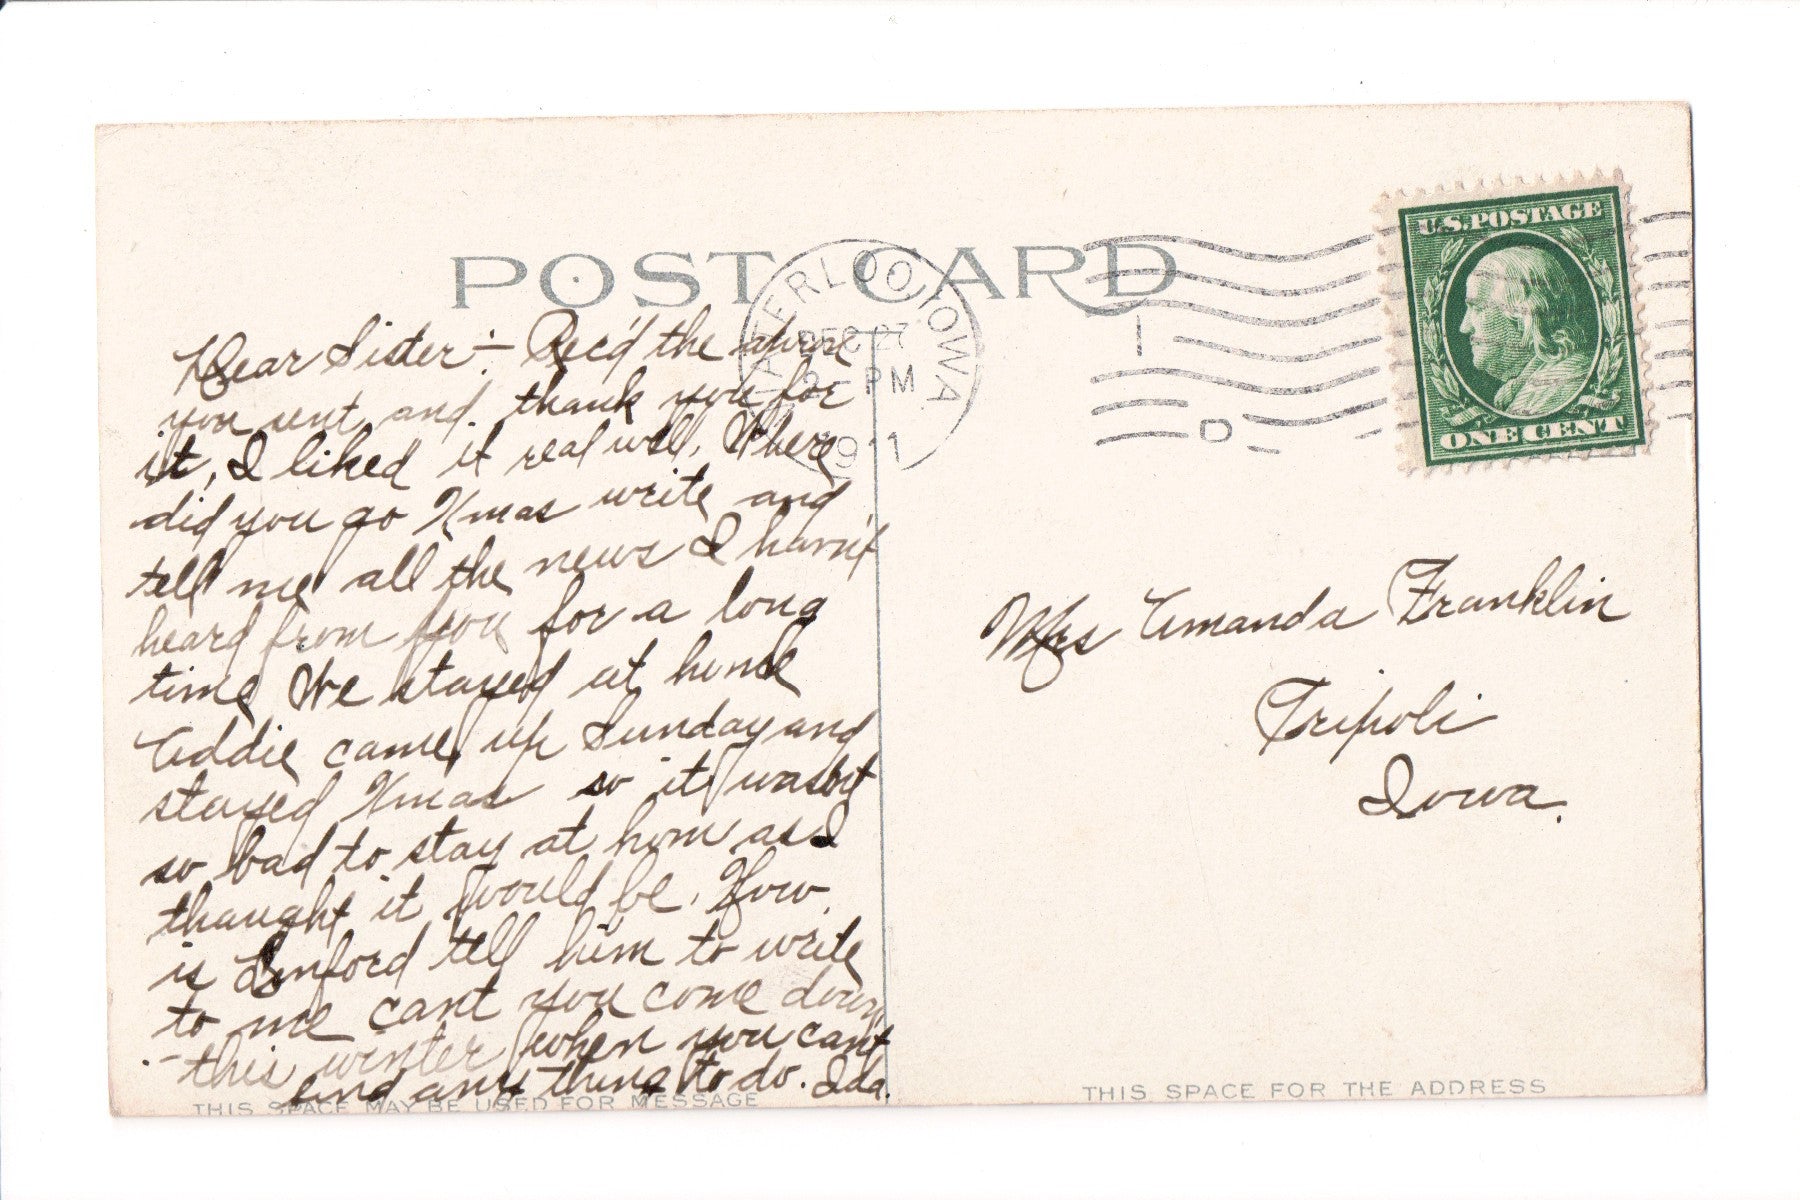 POST CARD
WATERLOO, IOWA
DEC 27
2 - PM
1911
U.S. POSTAGE
ONE CENT
Dear Sister:- Rec'd the
you sent and thank you for
it, I liked it real well. Where
did you go Xmas write and
tell me all the news I havn't
heard from you for a long
time We stayed at home
Addie came up Sunday and
stayed Xmas so it wasnt
so bad to stay at home as I
thought it would be. How
is Linford tell him to write
to me cant you come down
this winter when you can't
find any thing to do. Ida.
Mrs Amanda Franklin
Tripoli
Iowa.
THIS SPACE MAY BE USED FOR MESSAGE
THIS SPACE FOR THE ADDRESS